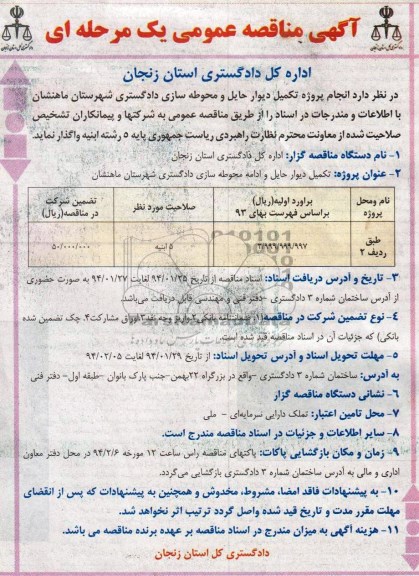 آگهی مناقصه عمومی یک مرحله ای
اداره کل دادگستری استان زنجان
در نظر دارد انجام پروژه تکمیل دیوار حایل و محوطه سازی دادگستری شهرستان ماهنشان
با اطلاعات و مندرجات در اسناد را از طریق مناقصه عمومی به شرکتها و پیمانکاران تشخیص
صلاحیت شده از معاونت محترم نظارت راهبردی ریاست جمهوری پایه ۵ رشته ابنیه واگذار نماید.
۱- نام دستگاه مناقصه گزار: اداره کل دادگستری استان زنجان
۲- عنوان پروژه: تکمیل دیوار حایل و ادامه محوطه سازی دادگستری شهرستان ماهنشان
نام ومحل پروژه
برآورد اولیه(ریال) براساس فهرست بهای ۹۳
صلاحیت مورد نظر
تضمین شرکت در مناقصه(ریال)
طبق ردیف ۲
۲/۹۹۹/۹۹۹/۹۹۷
۵ ابنیه
۵۰/۰۰۰/۰۰۰
۳- تاریخ و آدرس دریافت اسناد: اسناد مناقصه از تاریخ ۹۴/۰۱/۲۵ لغایت ۹۴/۰۱/۲۷ به صورت حضوری
از آدرس ساختمان شماره ۳ دادگستری -دفتر فنی و مهندسی قابل دریافت می‌باشد.
۴- نوع تضمین شرکت در مناقصه:(۱. ضمانتنامه بانکی ۲.واریز وجه نقد ۳.اوراق مشارکت۴. چک تضمین شده
بانکی) که جزئیات آن در اسناد مناقصه قید شده است.
۵- مهلت تحویل اسناد و آدرس تحویل اسناد: از تاریخ ۹۴/۰۱/۲۹ لغایت ۹۴/۰۲/۰۵
به آدرس: ساختمان شماره ۳ دادگستری -واقع در بزرگراه ۲۲بهمن-جنب پارک بانوان -طبقه اول- دفتر فنی
۶- نشانی دستگاه مناقصه گزار
۷- محل تامین اعتبار: تملک دارایی سرمایه‌ای - ملی
۸- سایر اطلاعات و جزئیات در اسناد مناقصه مندرج است.
۹- زمان و مکان بازگشایی پاکات: پاکتهای مناقصه راس ساعت ۱۲ مورخه ۹۴/۲/۶ در محل دفتر معاون
اداری و مالی به آدرس ساختمان شماره ۳ دادگستری بازگشایی می‌گردد.
۱۰- به پیشنهادات فاقد امضا، مشروط، مخدوش و همچنین به پیشنهادات که پس از انقضای
مهلت مقرر مدت و تاریخ قید شده واصل گردد ترتیب اثر نخواهد شد.
۱۱- هزینه آگهی به میزان مندرج در اسناد مناقصه بر عهده برنده مناقصه می باشد.
دادگستری کل استان زنجان